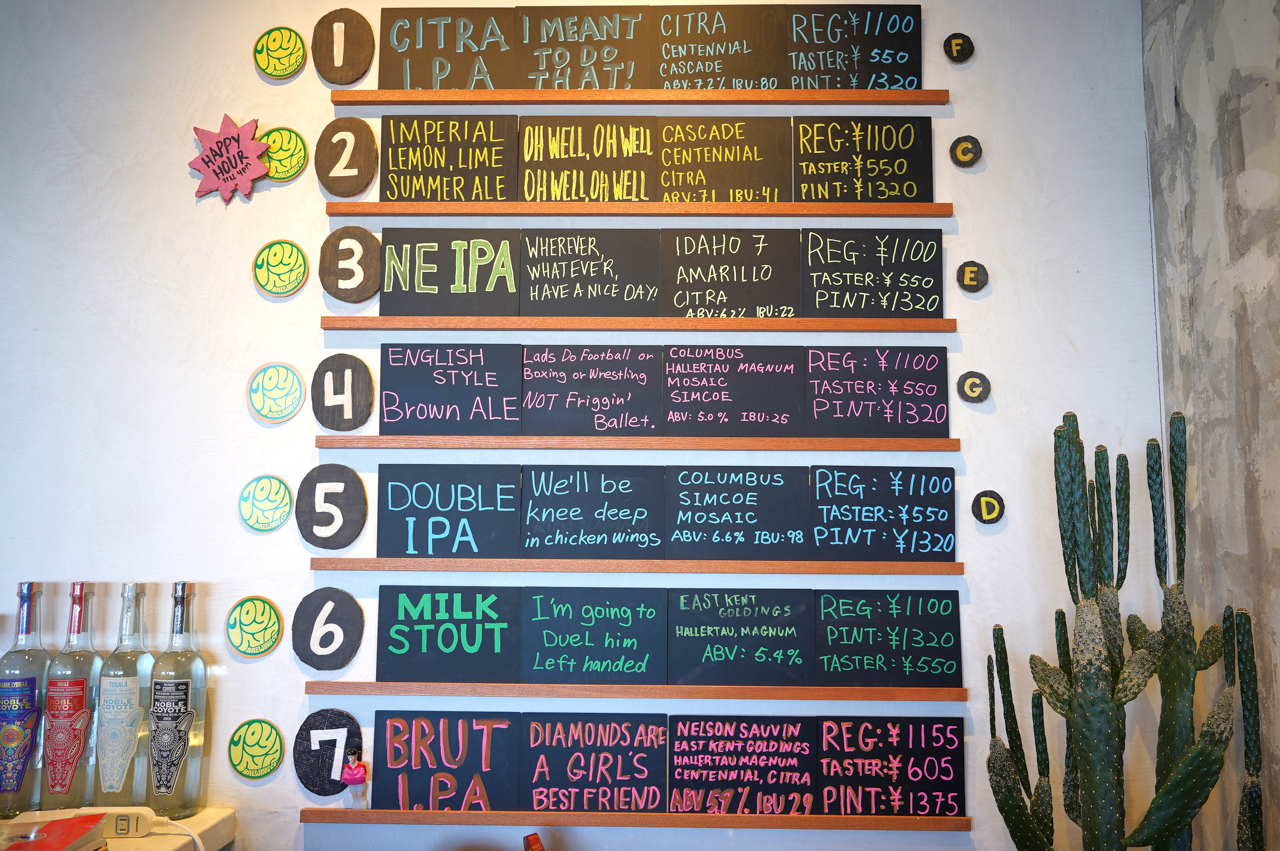 1
CITRA
I.P.A
I MEANT
TO DO
THAT!
CITRA
CENTENNIAL
CASCADE
ABV:7.2% IBU:80
REG:¥1100
TASTER:¥550
PINT:¥1320
F
HAPPY
HOUR
TILL 4PM
2
IMPERIAL
LEMON, LIME
SUMMER ALE
OH WELL, OH WELL
OH WELL, OH WELL
CASCADE
CENTENNIAL
CITRA
ABV:7.1 IBU:41
REG:¥1100
TASTER:¥550
PINT:¥1320
C
3
NE IPA
WHEREVER,
WHATEVER,
HAVE A NICE DAY!
IDAHO 7
AMARILLO
CITRA
ABV:6.2% IBU:22
REG:¥1100
TASTER:¥550
PINT:¥1320
E
4
ENGLISH
STYLE
Brown ALE
Lads Do Football or
Boxing or Wrestling
NOT Friggin'
Ballet.
COLUMBUS
HALLERTAU MAGNUM
MOSAIC
SIMCOE
ABV: 5.0% IBU:25
REG: ¥1100
TASTER:¥550
PINT:¥1320
G
5
DOUBLE
IPA
We'll be
knee deep
in chicken wings
COLUMBUS
SIMCOE
MOSAIC
ABV: 6.6% IBU:98
REG: ¥1100
TASTER:¥550
PINT:¥1320
D
6
MILK
STOUT
I'm going to
DueL him
Left handed
EAST KENT
GOLDINGS
HALLERTAU, MAGNUM
ABV: 5.4%
REG:¥1100
PINT:¥1320
TASTER:¥550
7
BRUT
I.P.A
DIAMONDS ARE
A GIRL'S
BEST FRIEND
NELSON SAUVIN
EAST KENT GOLDINGS
HALLERTAU MAGNUM
CENTENNIAL, CITRA
ABV 5.9% IBU 29
REG:¥1155
TASTER:¥605
PINT:¥1375
NOBLE
COYOTE
NOBLE
COYOTE
NOBLE
COYOTE
NOBLE
COYOTE